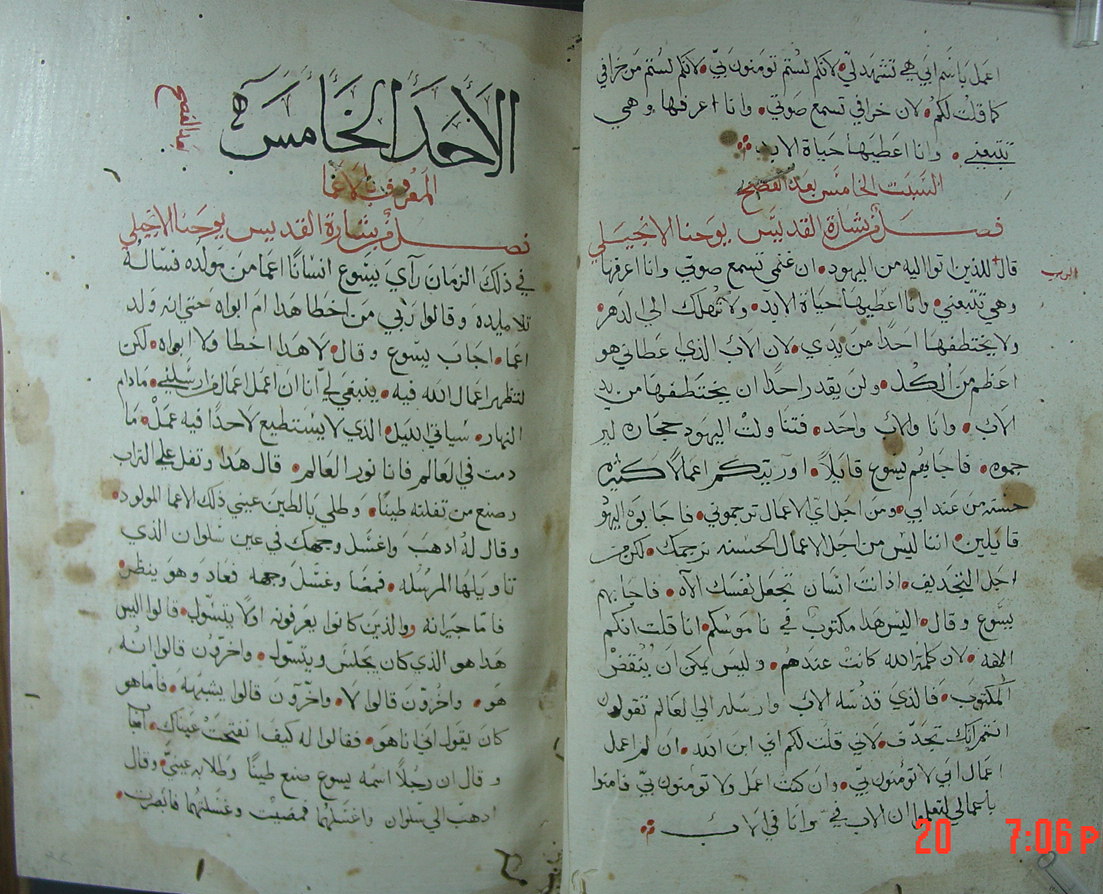 اعمل باسم ابي هي تشهد لي لانكم لستم تومنون بي لانكم لستم من خرافي
كما قلت لكم لان خرافي تسمع صوتي وانا اعرفها وهي
تتبعني وانا اعطيها حياة الابد
السبت الخامس بعد الفصح
فصل من بشارة القديس يوحنا الانجيلي
قال للذين اتوا اليه من اليهود ان غنمي تسمع صوتي وانا اعرفها
الرب
وهي تتبعني وانا اعطيها حياة الابد ولا تهلك الي الدهر
ولا يختطفها احدا من يدي لان الاب الذي عطاني هو
اعظم من الكل ولن يقدر احدا ان يختطفها من يد
الاب وانا والاب واحد فتناولت اليهود حجاره لير
جموه فاجابهم يسوع قايلا اوريتكم اعمالا كثيره
حسنة من عند ابي ومن اجل اي الاعمال ترجموني فاجابوه اليهو
قايلين اننا ليس من اجل الاعمال الحسنه نرجمك لكن من
اجل التجديف اذ انت انسان تجعل نفسك الاه فاجابهم
يسوع وقال اليس هذا مكتوب في ناموسكم انا قلت انكم
الهه لان كلمة الله كانت عندهم وليس يمكن ان ينقض
المكتوب فالذي قدسه الاب وارسله الي العالم تقولون
انتم انك تجدف لاني قلت لكم اني ابن الله ان لم اعمل
اعمال ابي لا تومنون بي وان كنت اعمل ولا تومنون بي فامنوا
باعمالي لتعلموا ان الاب في وانا في الاب
الاحد الخامسة
بعد الفصح
المعروف بالاعما
فصل من بشارة القديس يوحنا الانجيلي
في ذلك الزمان رآي يسوع انسانا اعما من مولده فساله
تلاميده وقالوا ربي من اخطا هدا ام ابواه حتي انه ولد
اعما اجاب يسوع وقال لا هدا اخطا ولا ابواه لكن
لتظهر اعمال الله فيه ينبغي لي انا ان اعمل اعمال من ارسلني مادام
النهار سياتي الليل الدي لا يستطيع لاحدا فيه عمل ما
دمت في العالم فانا نور العالم قال هدا وتفل علي التراب
وصنع من تفلته طينا وطلي بالطين عيني ذلك الاعما المولود
وقال له ادهب واغسل وجهك في عين سلوان الذي
تاويلها المرسله فمضا وغسل وجهه فعاد وهو ينظر
فاما جيرانه والذين كانوا يعرفونه اولا يتسول قالوا اليس
هدا هو الذي كان يجلس ويتسول واخرون قالوا انه
هو واخرون قالوا لا واخرون قالوا يشبهه فاما هو
كان يقول اني انا هو فقالوا له كيف انفتحت عيناك اجا
وقال ان رجلا اسمه يسوع صنع طينا وطلا به عيني وقال
ادهب الي سلوان واغسلهما فمضيت وغسلتهما فابصرت
20 7:06 P